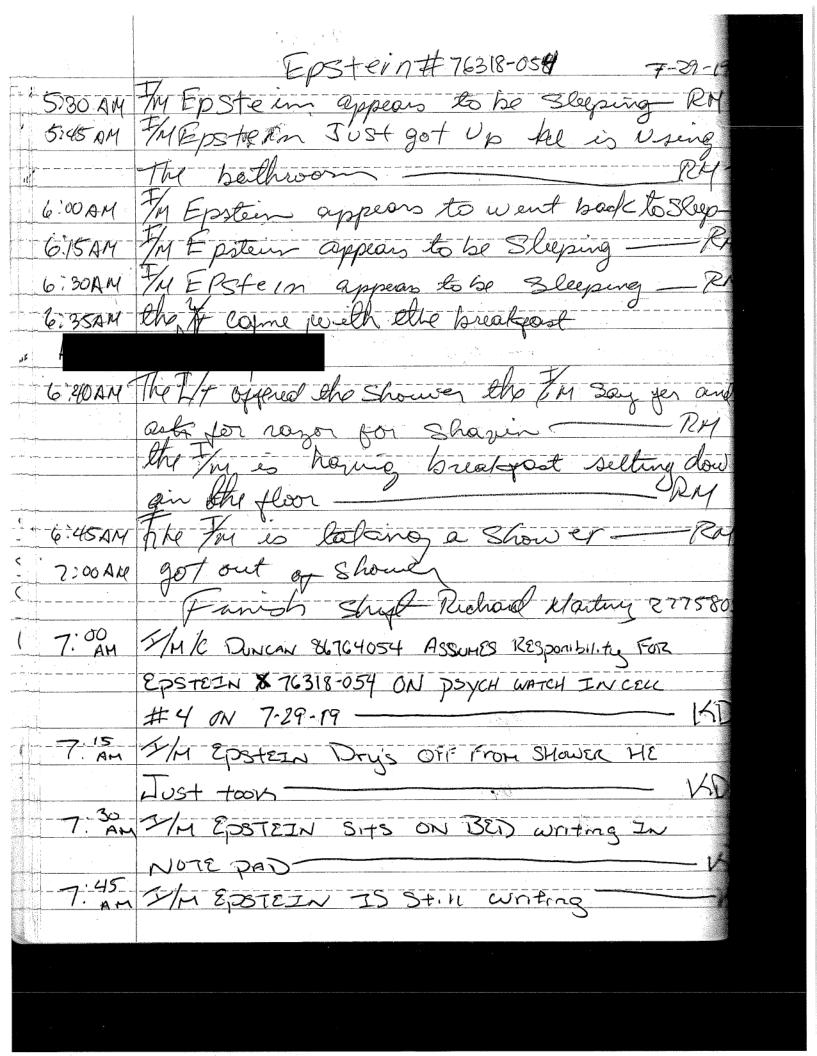 Epstein # 76318-054 7-29-19
5:30 AM I/M Epstein appears to be sleeping — RM
5:45 AM I/M Epstein Just got up he is using
The bathroom — RM
6:00 AM I/M Epstein appears to went back to sleep
6:15 AM I/M Epstein appears to be Sleeping — RM
6:30 AM I/M EPStein appears to be sleeping — RM
6:35 AM the came with the breakfast
6:40 AM The L/T offered the shower the I/M say yes and
ask for razor for shavin — RM
the I/M is having breakfast setting dow
in the floor — RM
6:45 AM The I/M is taking a shower — RM
7:00 AM got out of shower
Finish shift Richard 277580
7:00 AM I/M/C DUNCAN 86764054 ASSUMES RESponibility FOR
EPSTEIN 76318-054 ON PSYCH WATCH IN CELL
#4 ON 7-29-19 — KD
7:15 AM I/M EPSTEIN Dry's OFF From SHOWER HE
Just took — KD
7:30 AM I/M EPSTEIN SITS ON BED writing IN
NOTE PAD — K
7:45 AM I/M EPSTEIN IS Still writing —